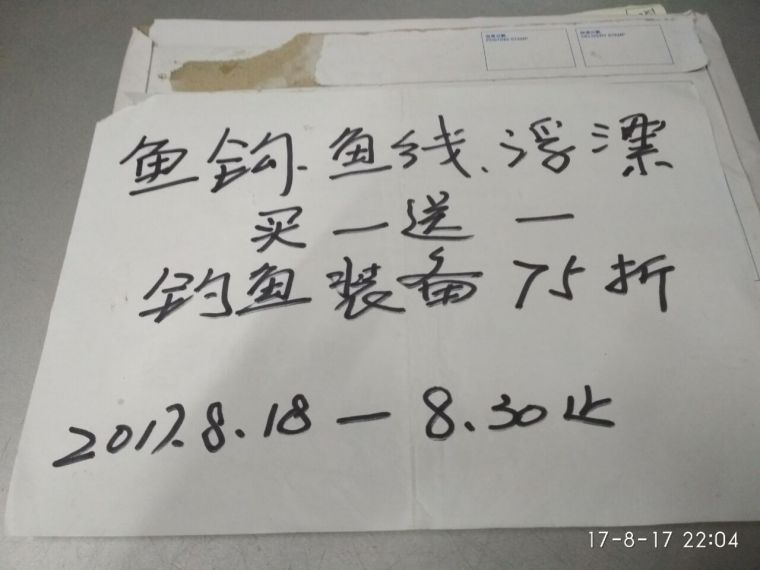 POSTING STAMP
DELIVERY STAMP
鱼钩、鱼线、浮漂
买一送一
钓鱼装备75折
2017.8.18—8.30止
17-8-17 22:04